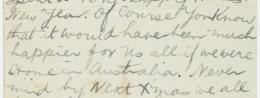 New Year. Of Course You Know
that it would have been much
happier for us all if we were
Home in Australia. Never
mind by Next Xmas we all